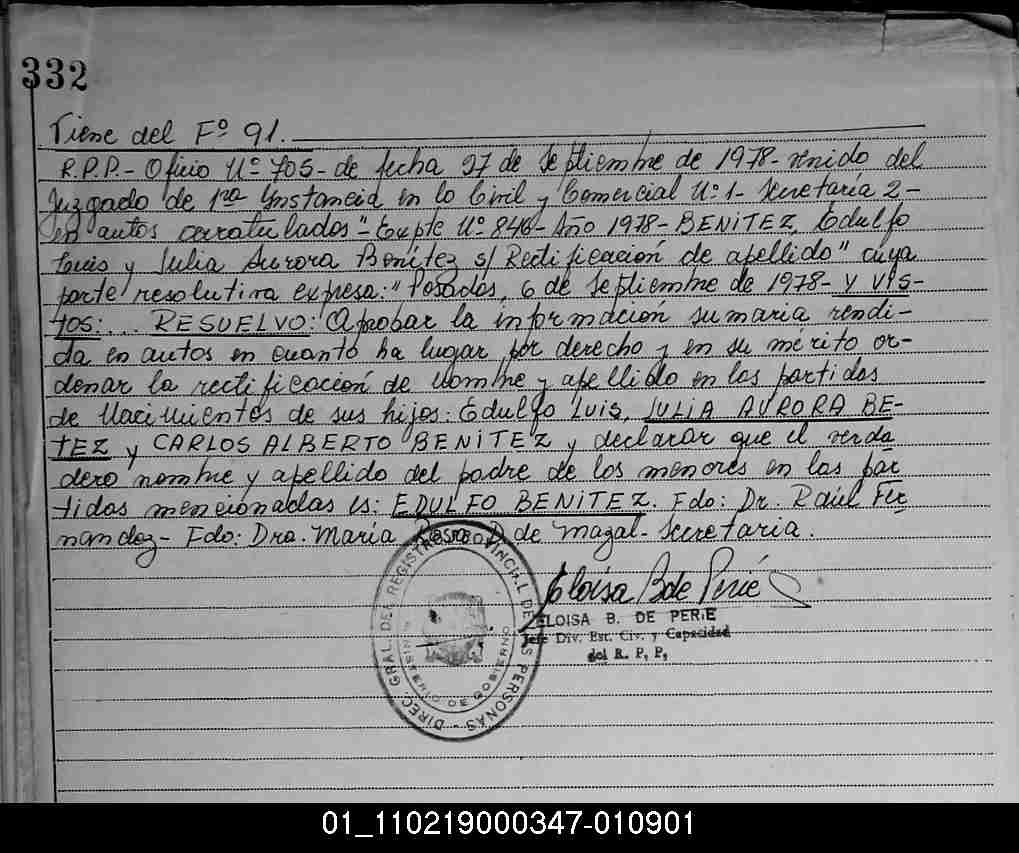 332
Viene del Fº 91.
R.P.P.- Oficio Nº 705- de fecha 27 de septiembre de 1978- venido del
Juzgado de 1ra Instancia en lo Civil y Comercial Nº 1- Secretaría 2-
en autos caratulados "- Expte Nº 846- Año 1978- BENITEZ, Edulfo
Luis y Julia Aurora Benítez s/ Rectificación de apellido" cuya
parte resolutiva expresa: "Posadas, 6 de septiembre de 1978- Y VIS-
TOS: ... RESUELVO: Aprobar la información sumaria rendi-
da en autos en cuanto ha lugar por derecho y en su mérito or-
denar la rectificación de nombre y apellido en las partidas
de Nacimientos de sus hijos: Edulfo Luis, JULIA AURORA BE-
TEZ y CARLOS ALBERTO BENITEZ y declarar que el verda
dero nombre y apellido del padre de los menores en las par
tidas mencionadas es: EDULFO BENITEZ. Fdo: Dr. Raúl Fer
nandez- Fdo: Dra. María Rosa D. de Mazal- Secretaria.
Eloisa B de Perié
ELOISA B. DE PERIE
Jefe Div. Est. Civ. y Capacidad
del R. P. P,
DIREC. GRAL. DEL REGISTRO PROVINCIAL DE LAS PERSONAS -
MINISTERIO DE GOBIERNO
01_110219000347-010901